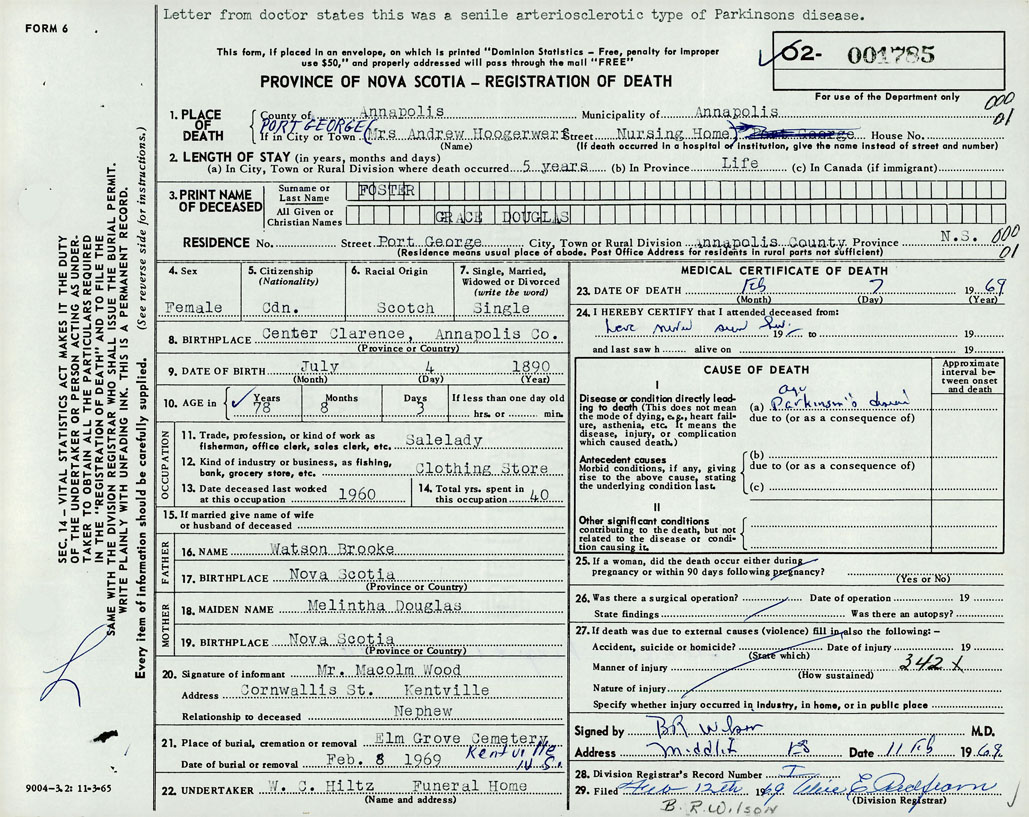 Letter from doctor states this was a senile arteriosclerotic type of Parkinsons disease.
FORM 6
This form, if placed in an envelope, on which is printed "Dominion Statistics - Free, penalty for improper
use $50," and properly addressed will pass through the mail "FREE"
62- 001785
PROVINCE OF NOVA SCOTIA - REGISTRATION OF DEATH
For use of the Department only
000
01
1. PLACE OF DEATH
County of Annapolis Municipality of Annapolis
PORT GEORGE
If in City or Town (Mrs Andrew Hoogerwerf Street Nursing Home) Port George House No.
(Name) (If death occurred in a hospital or institution, give the name instead of street and number)
2. LENGTH OF STAY (in years, months and days)
(a) In City, Town or Rural Division where death occurred 5 years (b) In Province Life (c) In Canada (if immigrant)
3. PRINT NAME OF DECEASED
Surname or Last Name FOSTER
All Given or Christian Names GRACE DOUGLAS
RESIDENCE No. Street Port George City, Town or Rural Division Annapolis County Province N.S. 000
(Residence means usual place of abode. Post Office Address for residents in rural parts not sufficient) 01
4. Sex
Female
5. Citizenship
(Nationality)
Cdn.
6. Racial Origin
Scotch
7. Single, Married,
Widowed or Divorced
(write the word)
Single
8. BIRTHPLACE Center Clarence, Annapolis Co.
(Province or Country)
9. DATE OF BIRTH July 4 1890
(Month) (Day) (Year)
10. AGE in Years Months Days If less than one day old
78 8 3 hrs. or min.
OCCUPATION
11. Trade, profession, or kind of work as
fisherman, office clerk, sales clerk, etc. Salelady
12. Kind of industry or business, as fishing,
bank, grocery store, etc. Clothing Store
13. Date deceased last worked
at this occupation 1960
14. Total yrs. spent in
this occupation 40
15. If married give name of wife
or husband of deceased
FATHER
16. NAME Watson Brooke
17. BIRTHPLACE Nova Scotia
(Province or Country)
MOTHER
18. MAIDEN NAME Melintha Douglas
19. BIRTHPLACE Nova Scotia
(Province or Country)
20. Signature of informant Mr. Macolm Wood
Address Cornwallis St. Kentville
Relationship to deceased Nephew
21. Place of burial, cremation or removal Elm Grove Cemetery
Kentville
N.S.
Date of burial or removal Feb. 8 1969
22. UNDERTAKER W. C. Hiltz Funeral Home
(Name and address)
MEDICAL CERTIFICATE OF DEATH
23. DATE OF DEATH Feb 7 1969
(Month) (Day) (Year)
24. I HEREBY CERTIFY that I attended deceased from:
have never seen her. 19 to 19
and last saw h alive on 19
CAUSE OF DEATH
Approximate
interval be-
tween onset
and death
I
Disease or condition directly lead-
ing to death (This does not mean
the mode of dying, e.g., heart fail-
ure, asthenia, etc. It means the
disease, injury, or complication
which caused death.)
age
(a) Parkinson's
due to (or as a consequence of)
Antecedent causes
Morbid conditions, if any, giving
rise to the above cause, stating
the underlying condition last.
(b)
due to (or as a consequence of)
(c)
II
Other significant conditions
contributing to the death, but not
related to the disease or condi-
tion causing it.
25. If a woman, did the death occur either during
pregnancy or within 90 days following pregnancy?
(Yes or No)
26. Was there a surgical operation? Date of operation 19
State findings Was there an autopsy?
27. If death was due to external causes (violence) fill in also the following:-
Accident, suicide or homicide? Date of injury 19
(State which)
342 X
Manner of injury
(How sustained)
Nature of injury
Specify whether injury occurred in industry, in home, or in public place
Signed by B R Wilson M.D.
Address Date 11 Feb 1969
28. Division Registrar's Record Number
29. Filed Feb 12th 1969
(Division Registrar)
B. R. WILSON
SEC. 14 - VITAL STATISTICS ACT MAKES IT THE DUTY
OF THE UNDERTAKER OR PERSON ACTING AS UNDER-
TAKER TO OBTAIN ALL THE PARTICULARS REQUIRED
IN THE "REGISTRATION OF DEATH" AND TO FILE THE
SAME WITH THE DIVISION REGISTRAR WHO SHALL ISSUE THE BURIAL PERMIT.
WRITE PLAINLY WITH UNFADING INK. THIS IS A PERMANENT RECORD.
Every item of information should be carefully supplied. (See reverse side for instructions.)
9004-3.2: 11-3-65